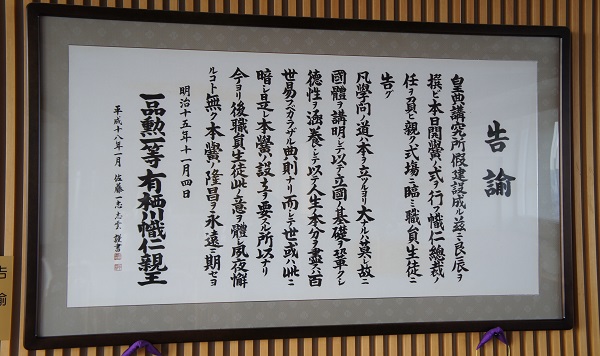 告諭
皇典講究所假建設成ル玆ニ良辰ヲ
撰ビ本日開黌ノ式ヲ行フ幟仁總裁ノ
任ヲ負ヒ親ク式場ニ臨ミ職員生徒ニ
告グ
凡學問ノ道ハ本ヲ立ツルヨリ大ナルハ莫シ故ニ
國體ヲ講明シテ以テ立國ノ基礎ヲ鞏クシ
德性ヲ涵養シテ以テ人生ノ本分ヲ盡スハ百
世易フベカラザル典則ナリ而シテ世或ハ此ニ
暗シ是レ本黌ノ設立ヲ要スル所以ナリ
今ヨリ後職員生徒此ノ意ヲ體シ夙夜懈
ルコト無ク本黌ノ隆昌ヲ永遠ニ期セヨ
明治十五年十一月四日
一品勲一等有栖川幟仁親王
平成十八年一月 佐藤一志 志堂 謹書
告諭